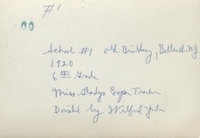 #1
School #1 old Building, Belleville NJ
1920
6th Grade
Miss Gladys Teacher
Donated by Wilfred